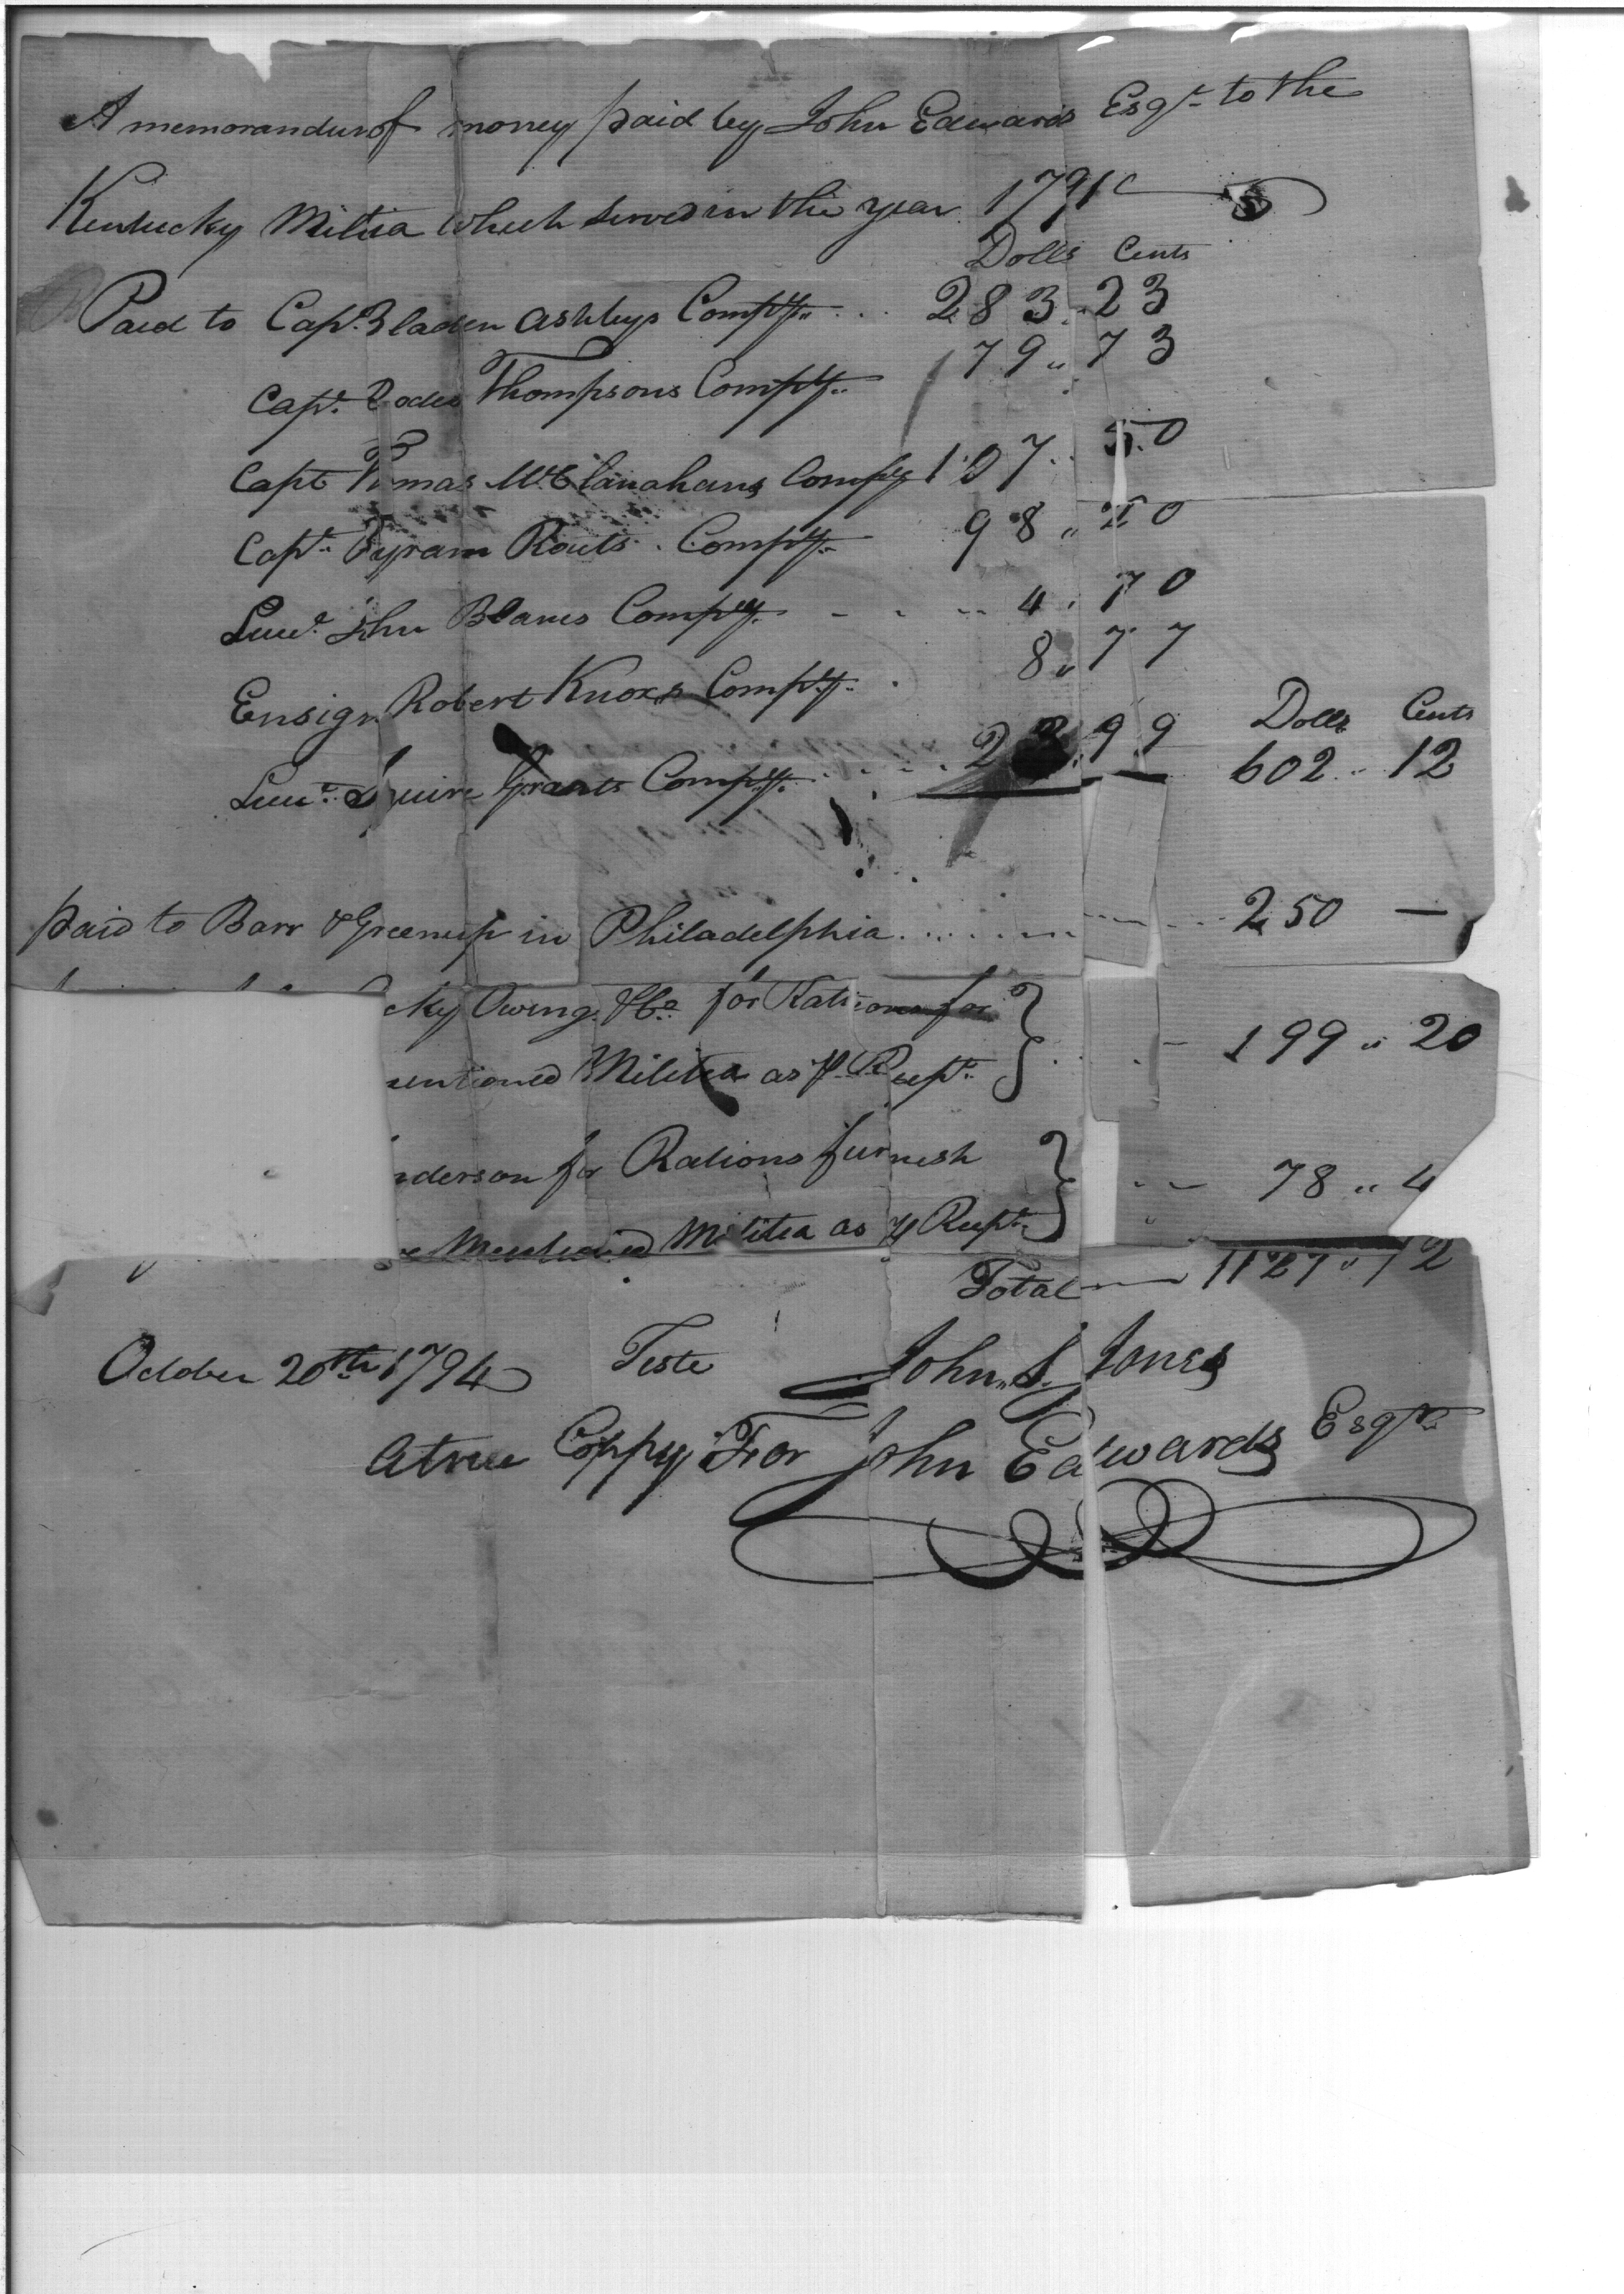 A memorandum of money paid by John Edwards Esqr. to the
Kentucky Militia which served in the year 1791
Dolls Cents
Paid to Capt. Bladen Ashbys Compy. 283 . 23
Capt. Rodes Thompsons Compy. 179 " 73
Capt Thomas McClanahans Compy 107 . 50
Capt. Byram Routs Compy. 98 "
Lieut. John Blanes Compy. 4 . 70
Ensign Robert Knoxs Compy. 8 " 77
Dolls Cents
Lieut. Squire Grants Compy. 99 602 " 12
paid to Barr & Greenup in Philadelphia 250 —
cky Owings & Co. for Rations for
entioned Militia as pr. Recpt. 199 " 20
nderson for Rations furnish
e Mentioned Militia as pr Recpt. 78 " 4
Total 1127 "
October 20th 1794 Teste John S. Jones
A true Coppy For John Edwards Esqr.